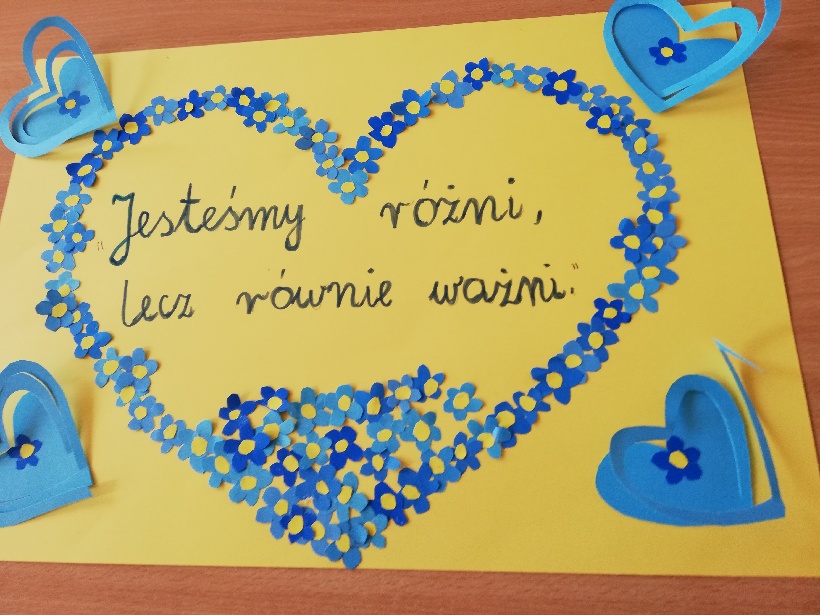 „Jesteśmy różni,
lecz równie ważni."